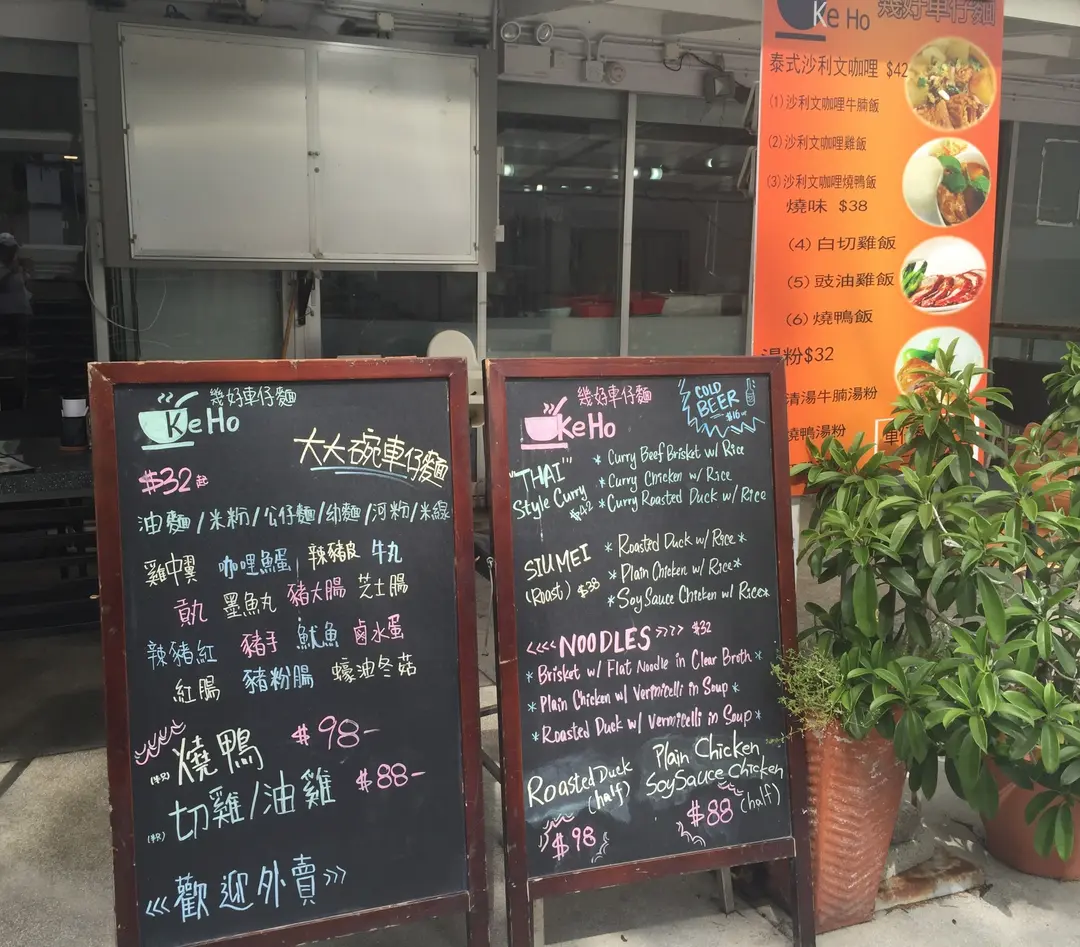 幾好車仔麵
KeHo
大大碗車仔麵
$32起
油麵/米粉/公仔麵/幼麵/河粉/米線
雞中翼 咖哩魚蛋 辣豬皮 牛丸
墨魚丸 豬大腸 芝士腸
辣豬紅 豬手 魷魚 鹵水蛋
紅腸 豬粉腸 蠔油冬菇
(半只) 燒鴨 $98-
(半只) 切雞/油雞 $88-
<<<歡迎外賣>>>
幾好車仔麵
KeHo
COLD
BEER
$16
"THAI"
Style Curry
$42
* Curry Beef Brisket w/ Rice
* Curry Chicken w/ Rice
* Curry Roasted Duck w/ Rice
SIU MEI
(Roast) $38
* Roasted Duck w/ Rice*
* Plain Chicken w/ Rice*
*Soy Sauce Chicken w/ Rice*
<<<<NOODLES>>>> $32
* Brisket w/ Flat Noodle in Clear Broth*
* Plain Chicken w/ Vermicelli in Soup*
* Roasted Duck w/ Vermicelli in Soup*
Roasted Duck
(half)
$98
Plain Chicken
Soy Sauce Chicken
$88 (half)
Ke Ho 幾好車仔麵
泰式沙利文咖哩 $42
(1)沙利文咖哩牛腩飯
(2)沙利文咖哩雞飯
(3)沙利文咖哩燒鴨飯
燒味 $38
(4)白切雞飯
(5)豉油雞飯
(6)燒鴨飯
湯粉$32
清湯牛腩湯粉
燒鴨湯粉